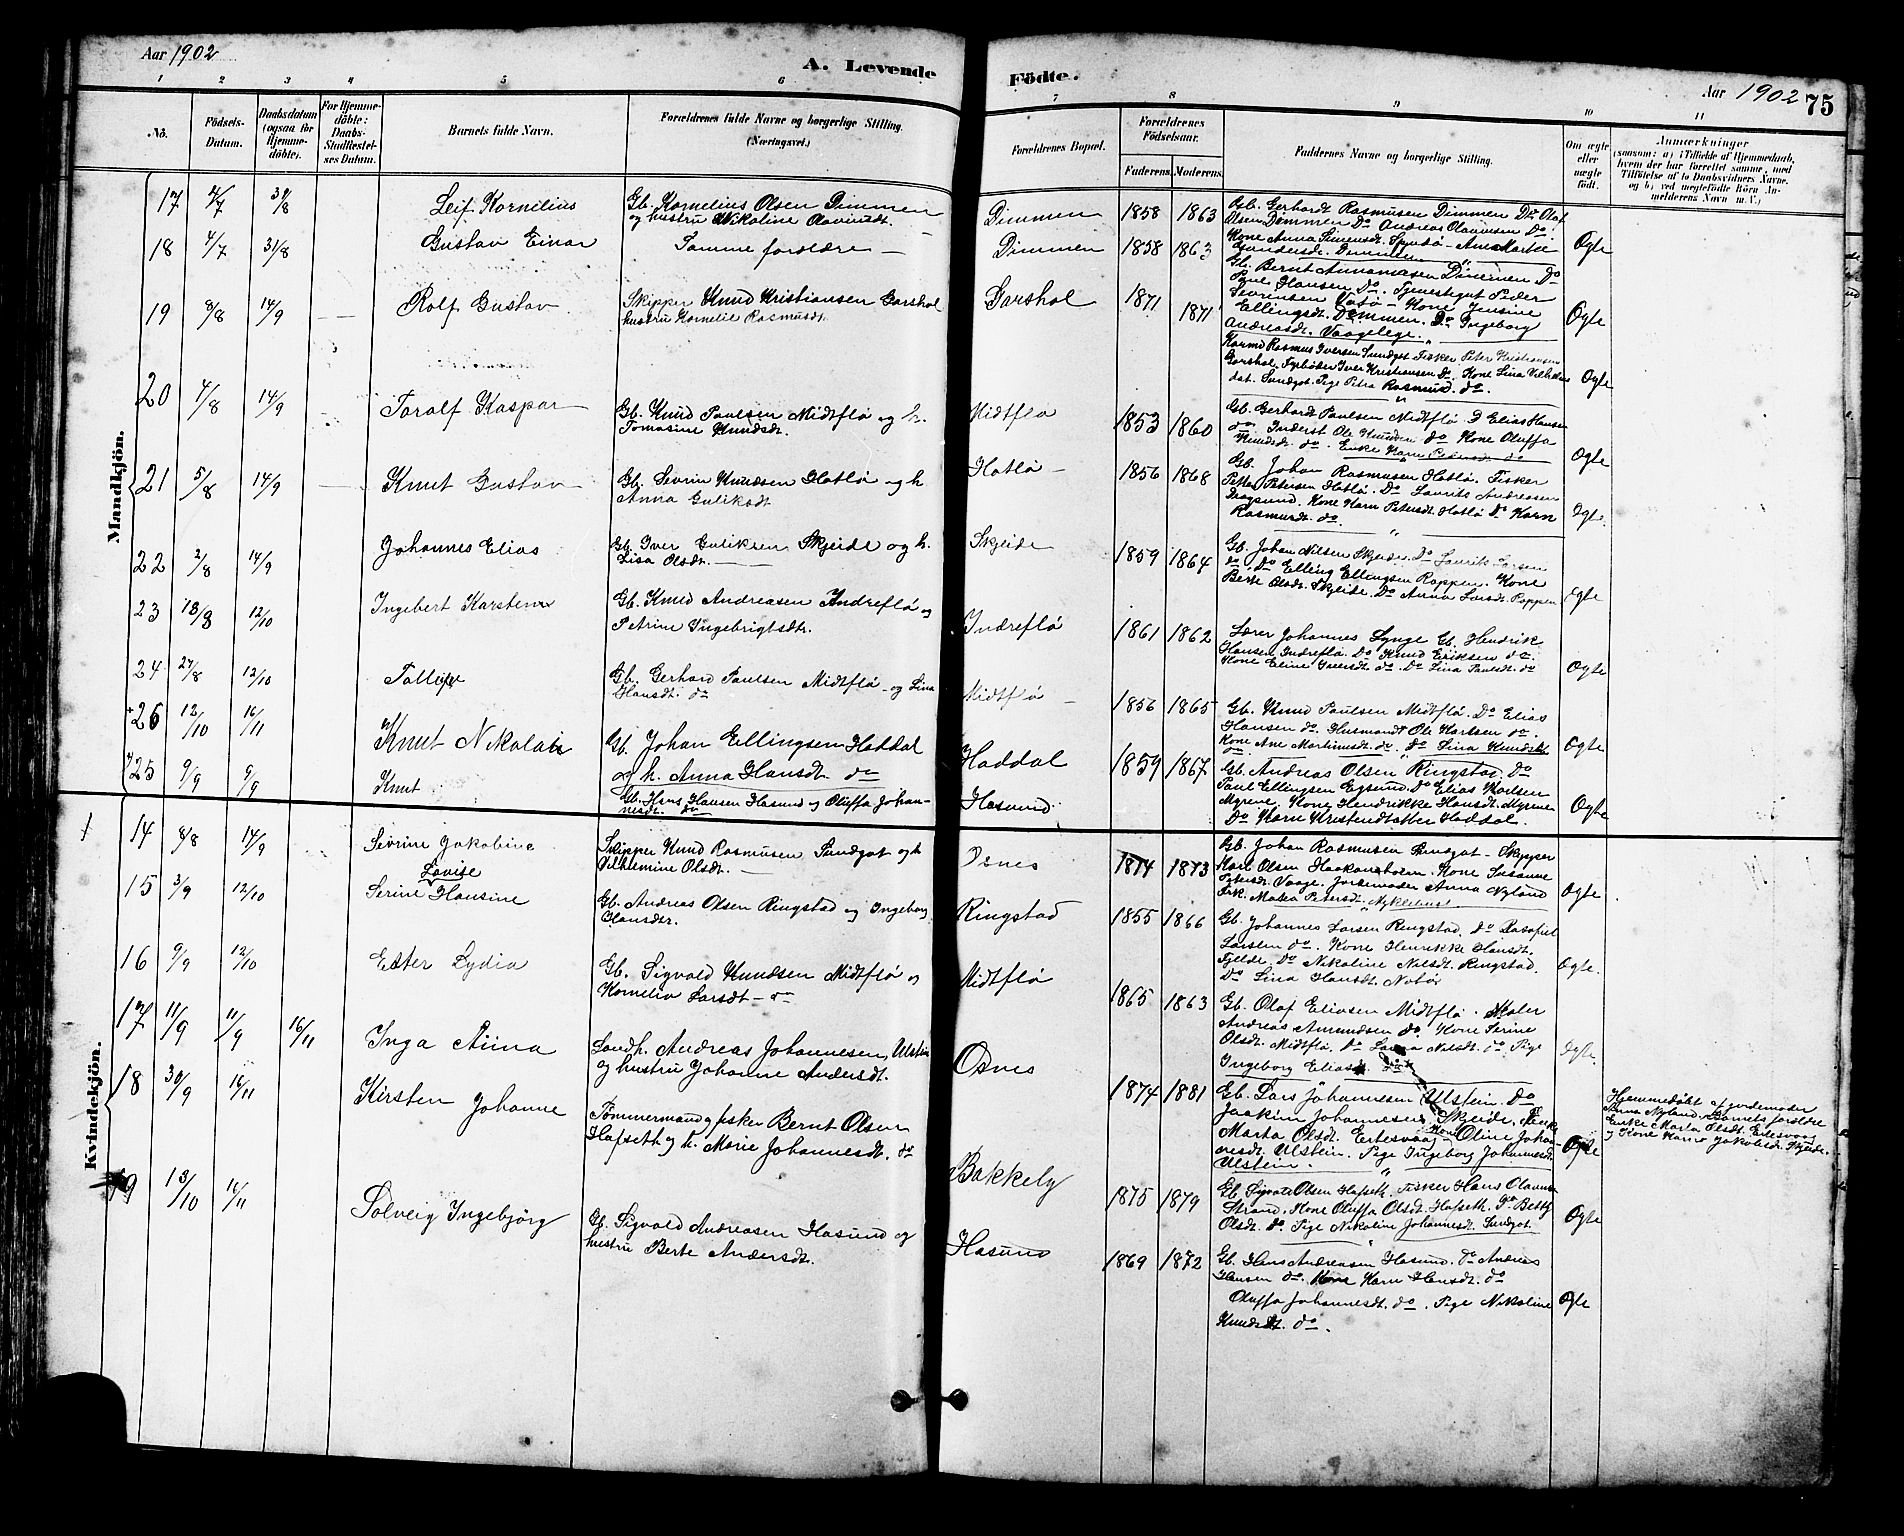 Aar 1902
A. Levende
Födte.
Aar 1902
75
1 2 3 4 5 6
7 8 9 10 11
No.
Födsels-
Datum.
Daabsdatum
(ogsaa for
Hjemme-
döbte).
For Hjemme-
döbte:
Daabs-
Stadfæstel-
ses Datum.
Barnets fulde Navn.
Forældrenes fulde Navne og borgerlige Stilling.
(Næringsvei.)
Forældrenes Bopæl.
Forældrenes
Födselsaar.
Faderens. Moderens.
Faddernes Navne og borgerlige Stilling.
Om ægte
eller
uægte
födt.
Anmærkninger
(saasom: a) i Tilfælde af Hjemmedaab,
hvem der har forrettet samme, med
Tilföielse af to Daabsvidners Navne,
og b) ved uegtefödte Börn An-
melderens Navn m. V.)
Mandkjön.
17 4/7 31/8 Leif Kornelius
Gb. Kornelius Olsen Dimmen
og hustru Nikoline Olavinsdt.
Dimmen 1858 1863
Gb. Gerhardt Rasmusen Dimmen Do Olaf
Olsen Dimmen Do Andreas Olavinsen Do
Kone Anna Simensdt.
Ogte
18 4/7 31/8 Gustav Einar
Samme forældre —
Dimmen 1858 1863
Gb. Bernt
Hansen Do. Tjenestegut Peder
Sevrensen Vatø — Kone Jensine
Ellingsdt. Dimmen. Do Ingeborg
Andreasdt. Vaagelege.
Ogte
19 8/8 14/9 — Rolf Gustav
Skipper Knud Kristiansen Garshol
hustru Kornelie Rasmusdt.
Garshol 1871 1871
Rasmus Iversen Sundgot Fisker Peter Kristiansen
Garshol Fyrbøder Iver Kristiansen do. Kone Lina Vilhelms
dat. Sundgot. Pige Petra Rasmusd. do.
Ogte
20 4/8 14/9 Toralf Kaspar
Gb. Knud Paulsen Midtflø og h.
Tomasine Knudsdt.
Midtflø 1853 1860
Gb. Gerhardt Paulsen Midtflø. D Elias Hansen
do. Inderst Ole Knudsen do Kone Oluffa
Knudsdt. do. Enke Karn Petersdt do
Ogte
21 5/8 14/9 — Knut Gustav
Gb. Sevrin Knudsen Hatlø og h
Anna Guliksdt
Hatlø — 1856 1868
Gb. Johan Rasmusen Hatlø. Fisker
Petter Petersen Hatlø. Do Laurits Andreasen
Dragsund. Kone Karn Petersdt. Hatlø Do Karn
Rasmusdt. do.
Ogte
22 2/8 14/9 Johannes Elias
Gb. Iver Guliksen Skjeide og h.
Lisa Olsdt. —
Skjeide 1859 1864
Gb. Johan Nilsen Skjeide. Do Laurik Larsen
do. Do Elling Ellingsen Rappen. Kone
Berte Olsdt. Skjeide. Do Anna Larsdt. Rappen
Ogte
23 18/8 12/10 Ingebert Karsten
Gb. Knud Andreasen Indreflø og
Petrine Ingebrigtsdtr.
Indreflø 1861 1862
Lærer Johannes Lynge Gb. Hendrik
Hansen Indreflø. Do Knud Eriksen do
Kone Eline Iversdt. do. Do Lina Paulsdt. do
Ogte
24 27/8 12/10
Gb. Gerhard Paulsen Midtflø — og Lina
Hansdt. do
Midtflø — 1856 1865
Gb. Knud Paulsen Midtflø. Do Elias
Hansen do. Husmandt Ole Karlsen do.
Kone Ane Martinusdt. do. do Lina Knudsdt
do
Ogte
26 12/10 16/11 Knut Nikolai
Gb. Johan Ellingsen Haddal
og h. Anna Hansdt. do
Haddal 1859 1867
Gb. Andreas Olsen Ringstad. Do
Paul Ellingsen Egsund. Do Elias Karlsen
Myrene. Kone Hendrikke Hansdt. Myrene
Do Karn Kristensdatter Haddal.
Ogte
25 9/9 9/9 Knut
Gb. Hans Hansen Hasund og Oluffa Johan-
nesdt. do
Hasund
Kvindekjön.
14 8/8 14/9 Sevrine Jakobine
Lovise
Skipper Knud Rasmusen Sundgot og h
Vilhelmine Olsdt. —
Osnes 1874 1873
Gb. Johan Rasmusen Sundgot — Skipper
Karl Olsen Haakonsholm. Kone Susanne
Petersdt. Vaage. Jordemoder Anna Nyland
Frk. Matea Petersdt. Myklebust
Ogte
15 3/9 12/10 Serine Hansine
Gb. Andreas Olsen Ringstad og Ingeborg
Hansdtr.
Ringstad 1855 1866
Gb. Johannes Larsen Ringstad. Do
Larsen do. Kone Henrikke Hansdt.
Fjelde. Do Nikoline Nilsdt. Ringstad.
Do Lina Hansdt.
Ogte.
16 9/9 12/10 Ester Lydia
Gb. Sigvald Knudsen Midtflø og
Kornelia Larsdt — do
Midtflø 1865 1863
Gb. Olaf Eliasen Midtflø. Maler
Andreas Amundsen do. Kone Serine
Olsdt. Midtflø. Do Nilsdt. do. Pige
Ingeborg Eliasdt. do
Ogte
17 11/9 11/9 16/11 Inga Anna
Landh. Andreas Johannesen, Ulstein
og hustru Johanne Andersdt.
Osnes 1874 1881
Gb. Lars Johannesen Ulstein. Do
Joakim Johannesen Skjeide. Enke
Marta Olsdt. Ertesvaag Kone Oline Johan-
nesdt. Ulstein. Pige Ingeborg Johannesdt.
Ulstein.
Ogte
Hjemmedøbt af jordemoder
Anna Nyland. Barnets forældre
Enke Marta Olsdt. Ertesvaag
og Kone Karn Jakobsdt. Skjeide.
18 30/9 16/11 Kirsten Johanne
Tømmermand og fisker Bernt Olsen
Hafseth og h. Marie Johannesdt. do
Bakkely 1875 1879
Gb. Sigvalt Olsen Hafseth. Fisker Hans Olavsen
Strand. Kone Oluffa Olsdt. Hafseth. Do Betty
Olsdt. do. Pige Nikoline Johannesdt. Sundgot.
Ogte
19 13/10 16/11 Solveig Ingebjörg
Gb. Sigvald Andreasen Hasund og
hustru Berte Andersdt.
Hasund 1869 1872
Gb. Hans Andreasen Hasund. Do Andreas
Hansen do. Kone Karn Hansdt. do
Oluffa Johannesdt. do. Pige Nikoline
Knudsdt. do.
Ogte